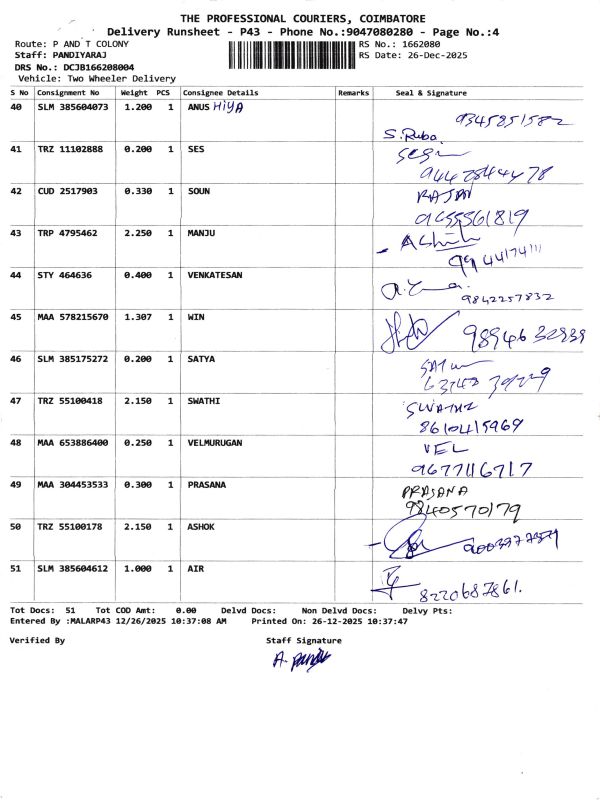 THE PROFESSIONAL COURIERS, COIMBATORE
Delivery Runsheet - P43 - Phone No.:9047080280 - Page No.:4
Route: P AND T COLONY RS No.: 1662080
Staff: PANDIYARAJ RS Date: 26-Dec-2025
DRS No.: DCJB166208004
Vehicle: Two Wheeler Delivery
S No Consignment No Weight PCS Consignee Details Remarks Seal & Signature
40 SLM 385604073 1.200 1 ANUSHiYA 9345851582
S.Ruba
41 TRZ 11102888 0.200 1 SES
42 CUD 2517903 0.330 1 SOUN RAJAN
43 TRP 4795462 2.250 1 MANJU
44 STY 464636 0.400 1 VENKATESAN
9842257832
45 MAA 578215670 1.307 1 WIN
46 SLM 385175272 0.200 1 SATYA
47 TRZ 55100418 2.150 1 SWATHI
8610415969
48 MAA 653886400 0.250 1 VELMURUGAN VEL
9677116717
49 MAA 304453533 0.300 1 PRASANA PRASANA
9840570179
50 TRZ 55100178 2.150 1 ASHOK
51 SLM 385604612 1.000 1 AIR
8220687861.
Tot Docs: 51 Tot COD Amt: 0.00 Delvd Docs: Non Delvd Docs: Delvy Pts:
Entered By :MALARP43 12/26/2025 10:37:08 AM Printed On: 26-12-2025 10:37:47
Verified By Staff Signature